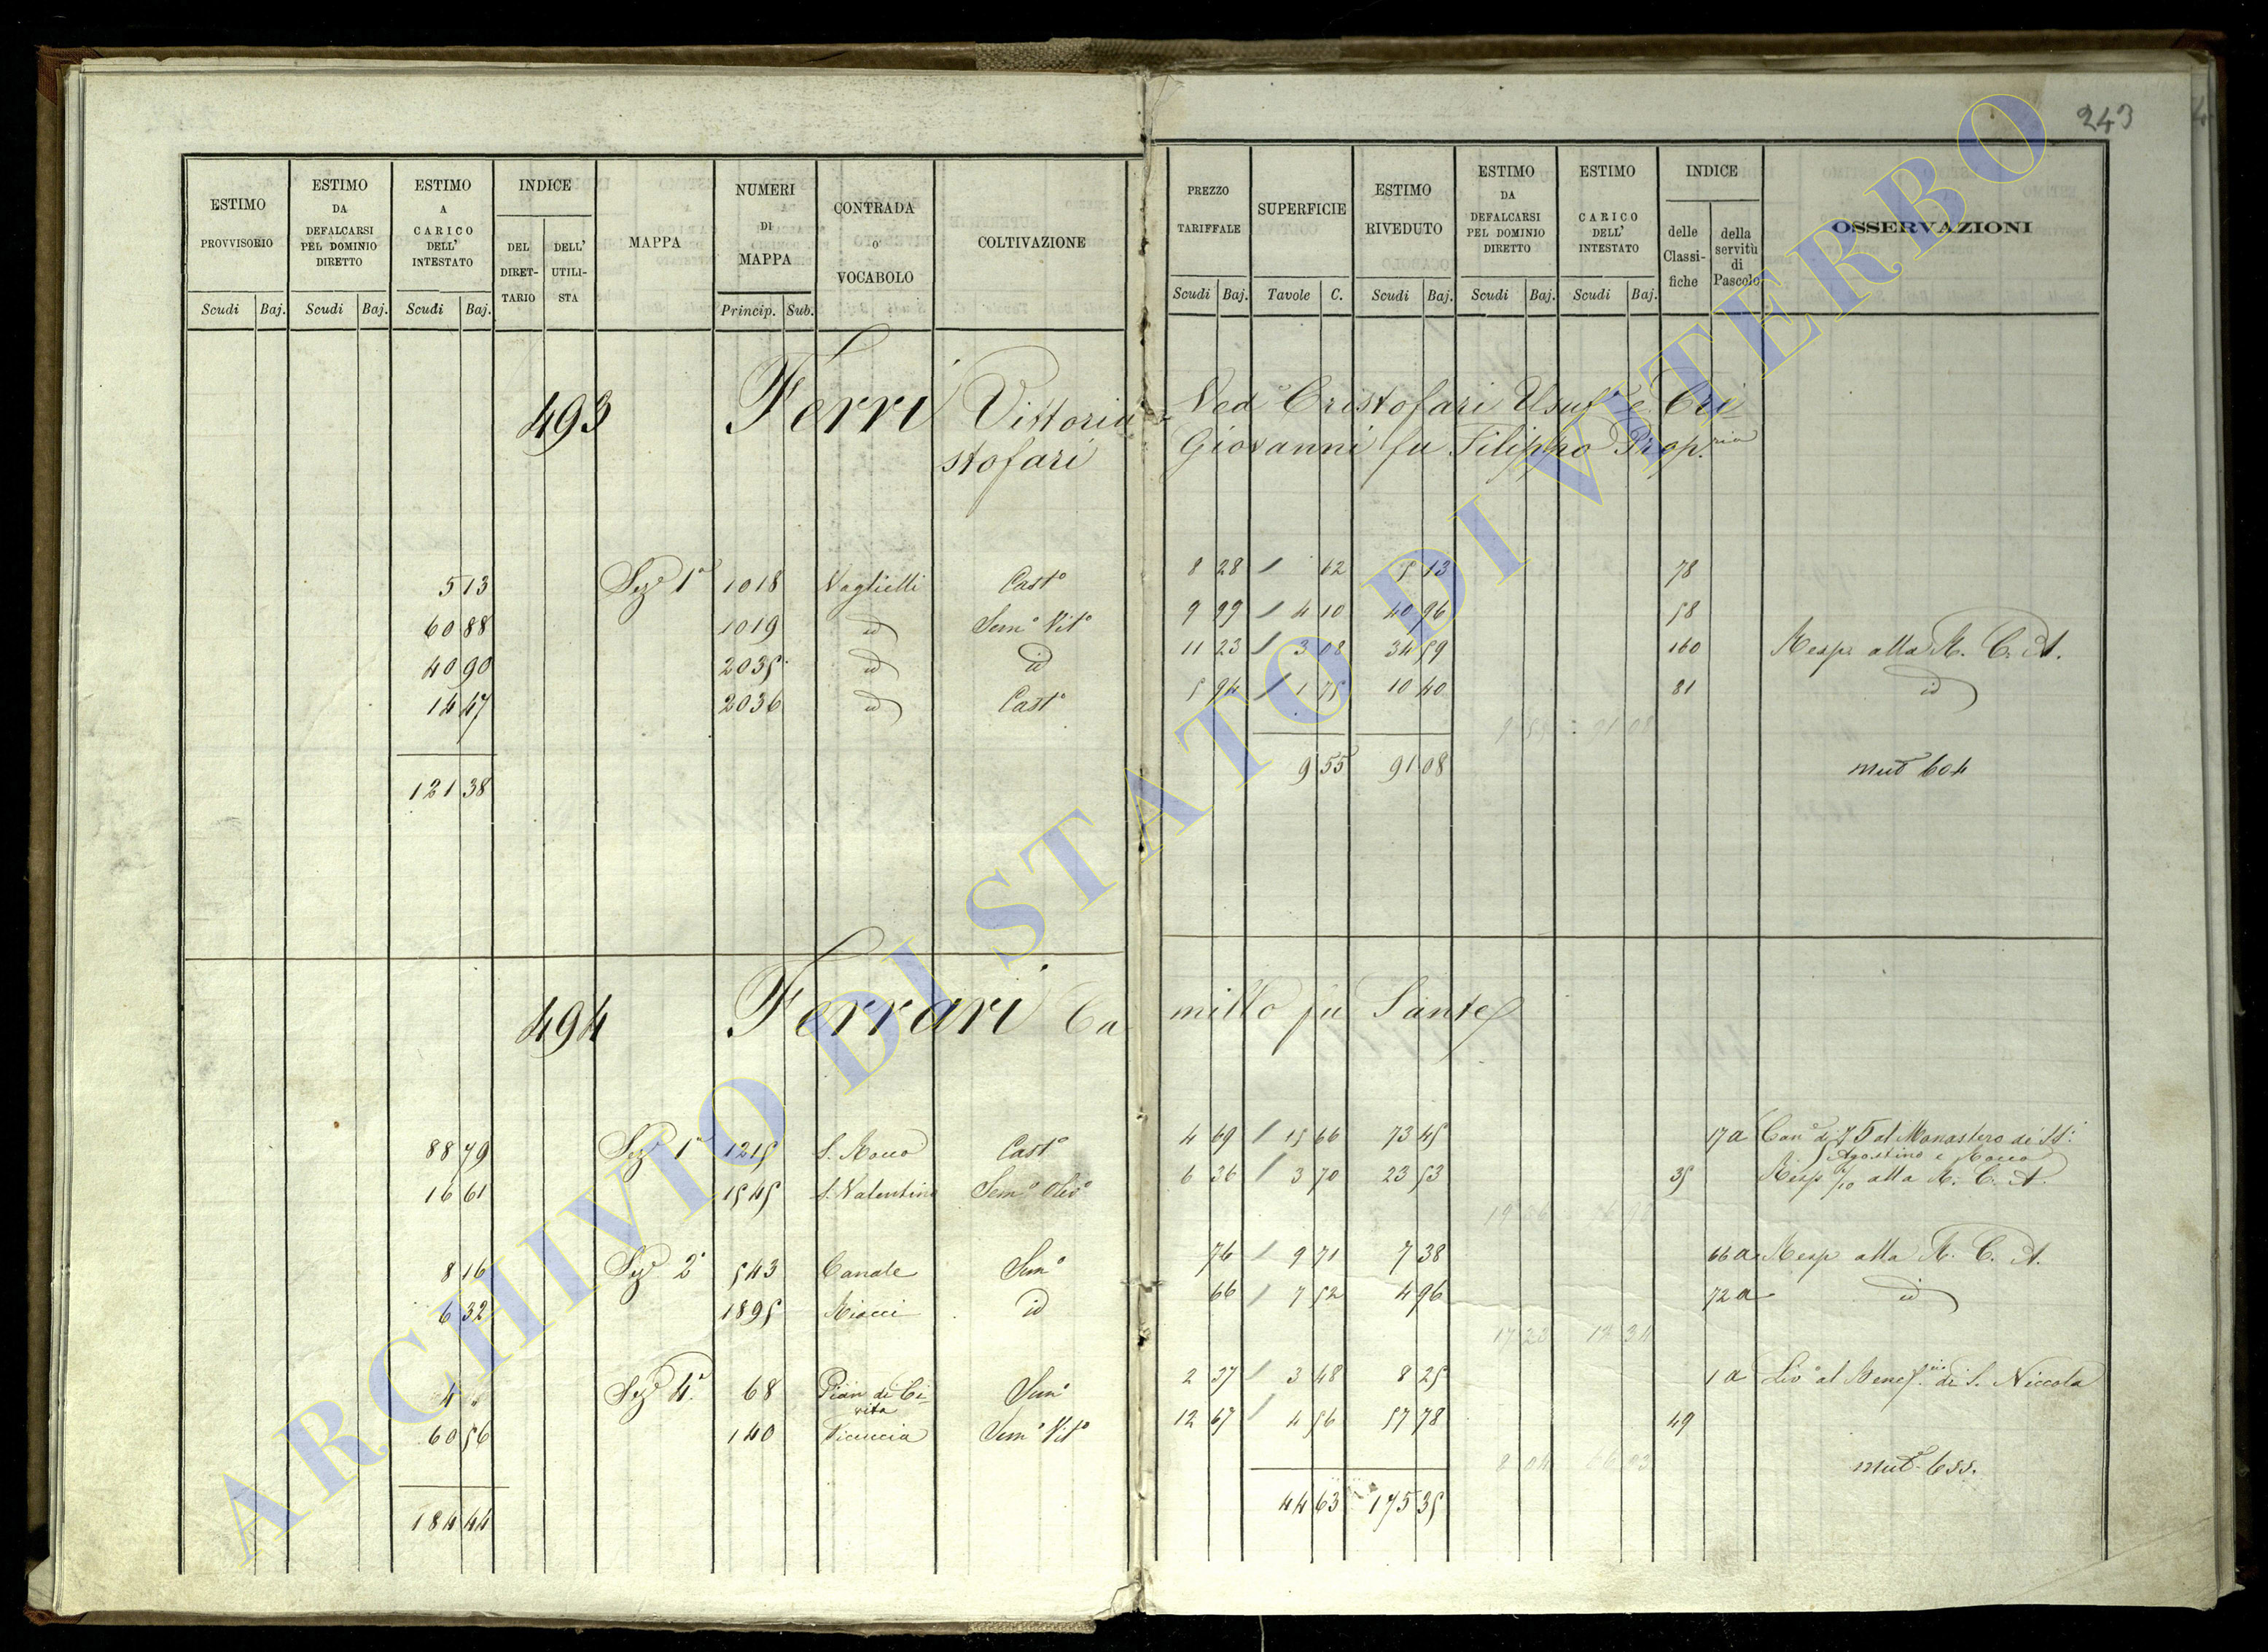 243
ESTIMO PROVVISORIO
ESTIMO DA DEFALCARSI PEL DOMINIO DIRETTO
ESTIMO A CARICO DELL' INTESTATO
INDICE
DEL DIRETTARIO
DELL' UTILISTA
MAPPA
NUMERI DI MAPPA
CONTRADA O VOCABOLO
COLTIVAZIONE
PREZZO TARIFFALE
SUPERFICIE
ESTIMO RIVEDUTO
ESTIMO DA DEFALCARSI PEL DOMINIO DIRETTO
ESTIMO CARICO DELL' INTESTATO
INDICE
delle Classifiche
della servitù di Pascolo
OSSERVAZIONI
Scudi Baj. Scudi Baj. Scudi Baj. Princip. Sub. Scudi Baj. Tavole C. Scudi Baj. Scudi Baj. Scudi Baj.
493 Ferri Vittoria Ved Cristofari Usuf.ª e Cri-
stofari Giovanni fu Filippo Prop.ria
5 13 Sez.e 1ª 1018 Naglielli Cast.o 8 28 / 62 5 13 78
60 88 1019 id Sem.o Vit.o 9 99 / 4 10 40 96 58
40 90 2035 id id 11 23 / 3 08 34 59 160 Resp. alla R. C. A.
14 47 2036 id Cast.o 5 94 / 1 75 10 40 81 id
9 55 91 08 mut 604
121 38
494 Ferrari Camillo fu Sante
88 79 Sez.e 1ª 1215 S. Rocco Cast.o 4 69 / 15 66 73 45 17a Can.e di al Monastero di SS.
Agostino e Rocco
16 61 1545 S. Valentino Sem.o Oliv.o 6 36 / 3 70 23 53 35 Risp /10 alla R. C. A.
8 16 Sez.e 2ª 543 Canale Sem.o 76 / 9 71 7 38 66a Resp alla R. C. A.
6 32 1895 Riacci id 66 / 7 52 4 96 72a id
4 Sez.e 4ª 68 Pian di Ci-
vita Sem.o 2 37 / 3 48 8 25 1a Liv.o al Benef.cio di S. Niccola
60 56 140 Ficuccia Sem.o Vit.o 12 67 / 4 56 57 78 49
mut 655.
184 44 44 63 175 35
ARCHIVIO DI STATO DI VITERBO